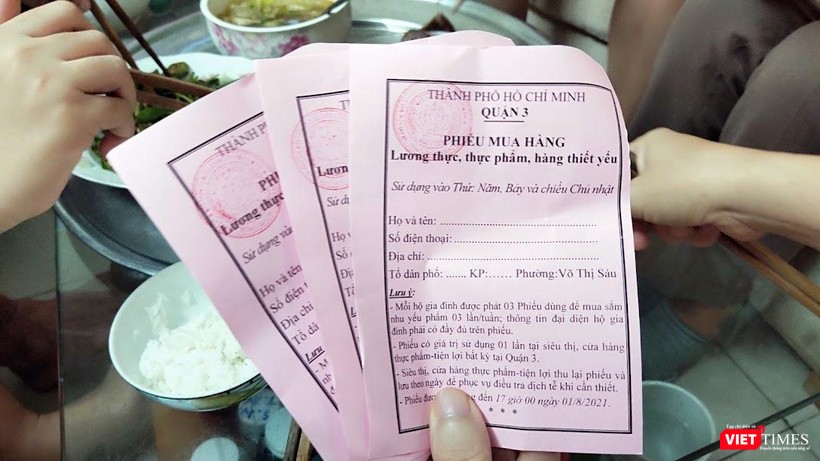 THÀNH PHỐ HỒ CHÍ MINH
QUẬN 3
PHIẾU MUA HÀNG
Lương thực, thực phẩm, hàng thiết yếu
Sử dụng vào Thứ: Năm, Bảy và chiều Chủ nhật
Họ và tên: ......................................................
Số điện thoại: .................................................
Địa chỉ: ...........................................................
Tổ dân phố: ......, KP:...... Phường:Võ Thị Sáu
Lưu ý:
- Mỗi hộ gia đình được phát 03 Phiếu dùng để mua sắm
nhu yếu phẩm 03 lần/tuần; thông tin đại diện hộ gia
đình phải có đầy đủ trên phiếu.
- Phiếu có giá trị sử dụng 01 lần tại siêu thị, cửa hàng
thực phẩm-tiện lợi bất kỳ tại Quận 3.
- Siêu thị, cửa hàng thực phẩm-tiện lợi thu lại phiếu và
lưu theo ngày để phục vụ điều tra dịch tễ khi cần thiết.
- Phiếu đến 17 giờ 00 ngày 01/8/2021.
* * *
THÀNH PHỐ
PHIẾU
Lương thực
Sử dụng vào
Họ và tên
Số điện
Địa chỉ
Tổ dân
Lưu ý
Tạp chí điện tử
VIETTIMES